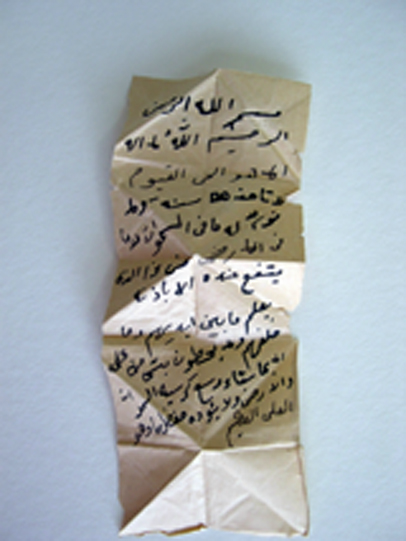 بسم الله الرحمن
الرحيم الله لا اله
الا هو الحى القيوم
لا تاخذه سنه ولا
نوم له ما فى السموات وما
فى الارض من ذا الذى
يشفع عنده الا باذنه
يعلم ما بين ايديهم وما
خلفهم ولا يحيطون بشى من علمه
الا بما شاء وسع كرسيه السموات
والارض ولا يؤده حفظهما وهو
العلى العظيم